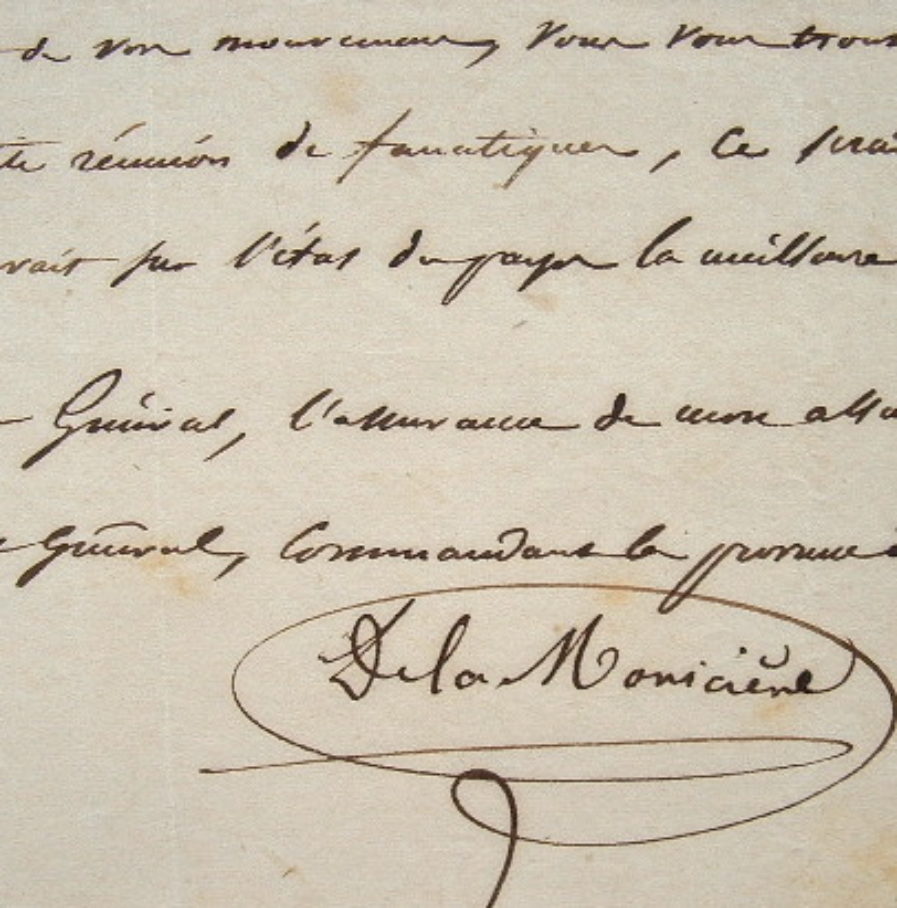 de vos mouvements, vous vous trouv
te réunion de fanatiques, ce serai
rait sur l'état du pays la meilleure
Général, l'assurance de mon atta
Général, Commandant la province
De la Moricière